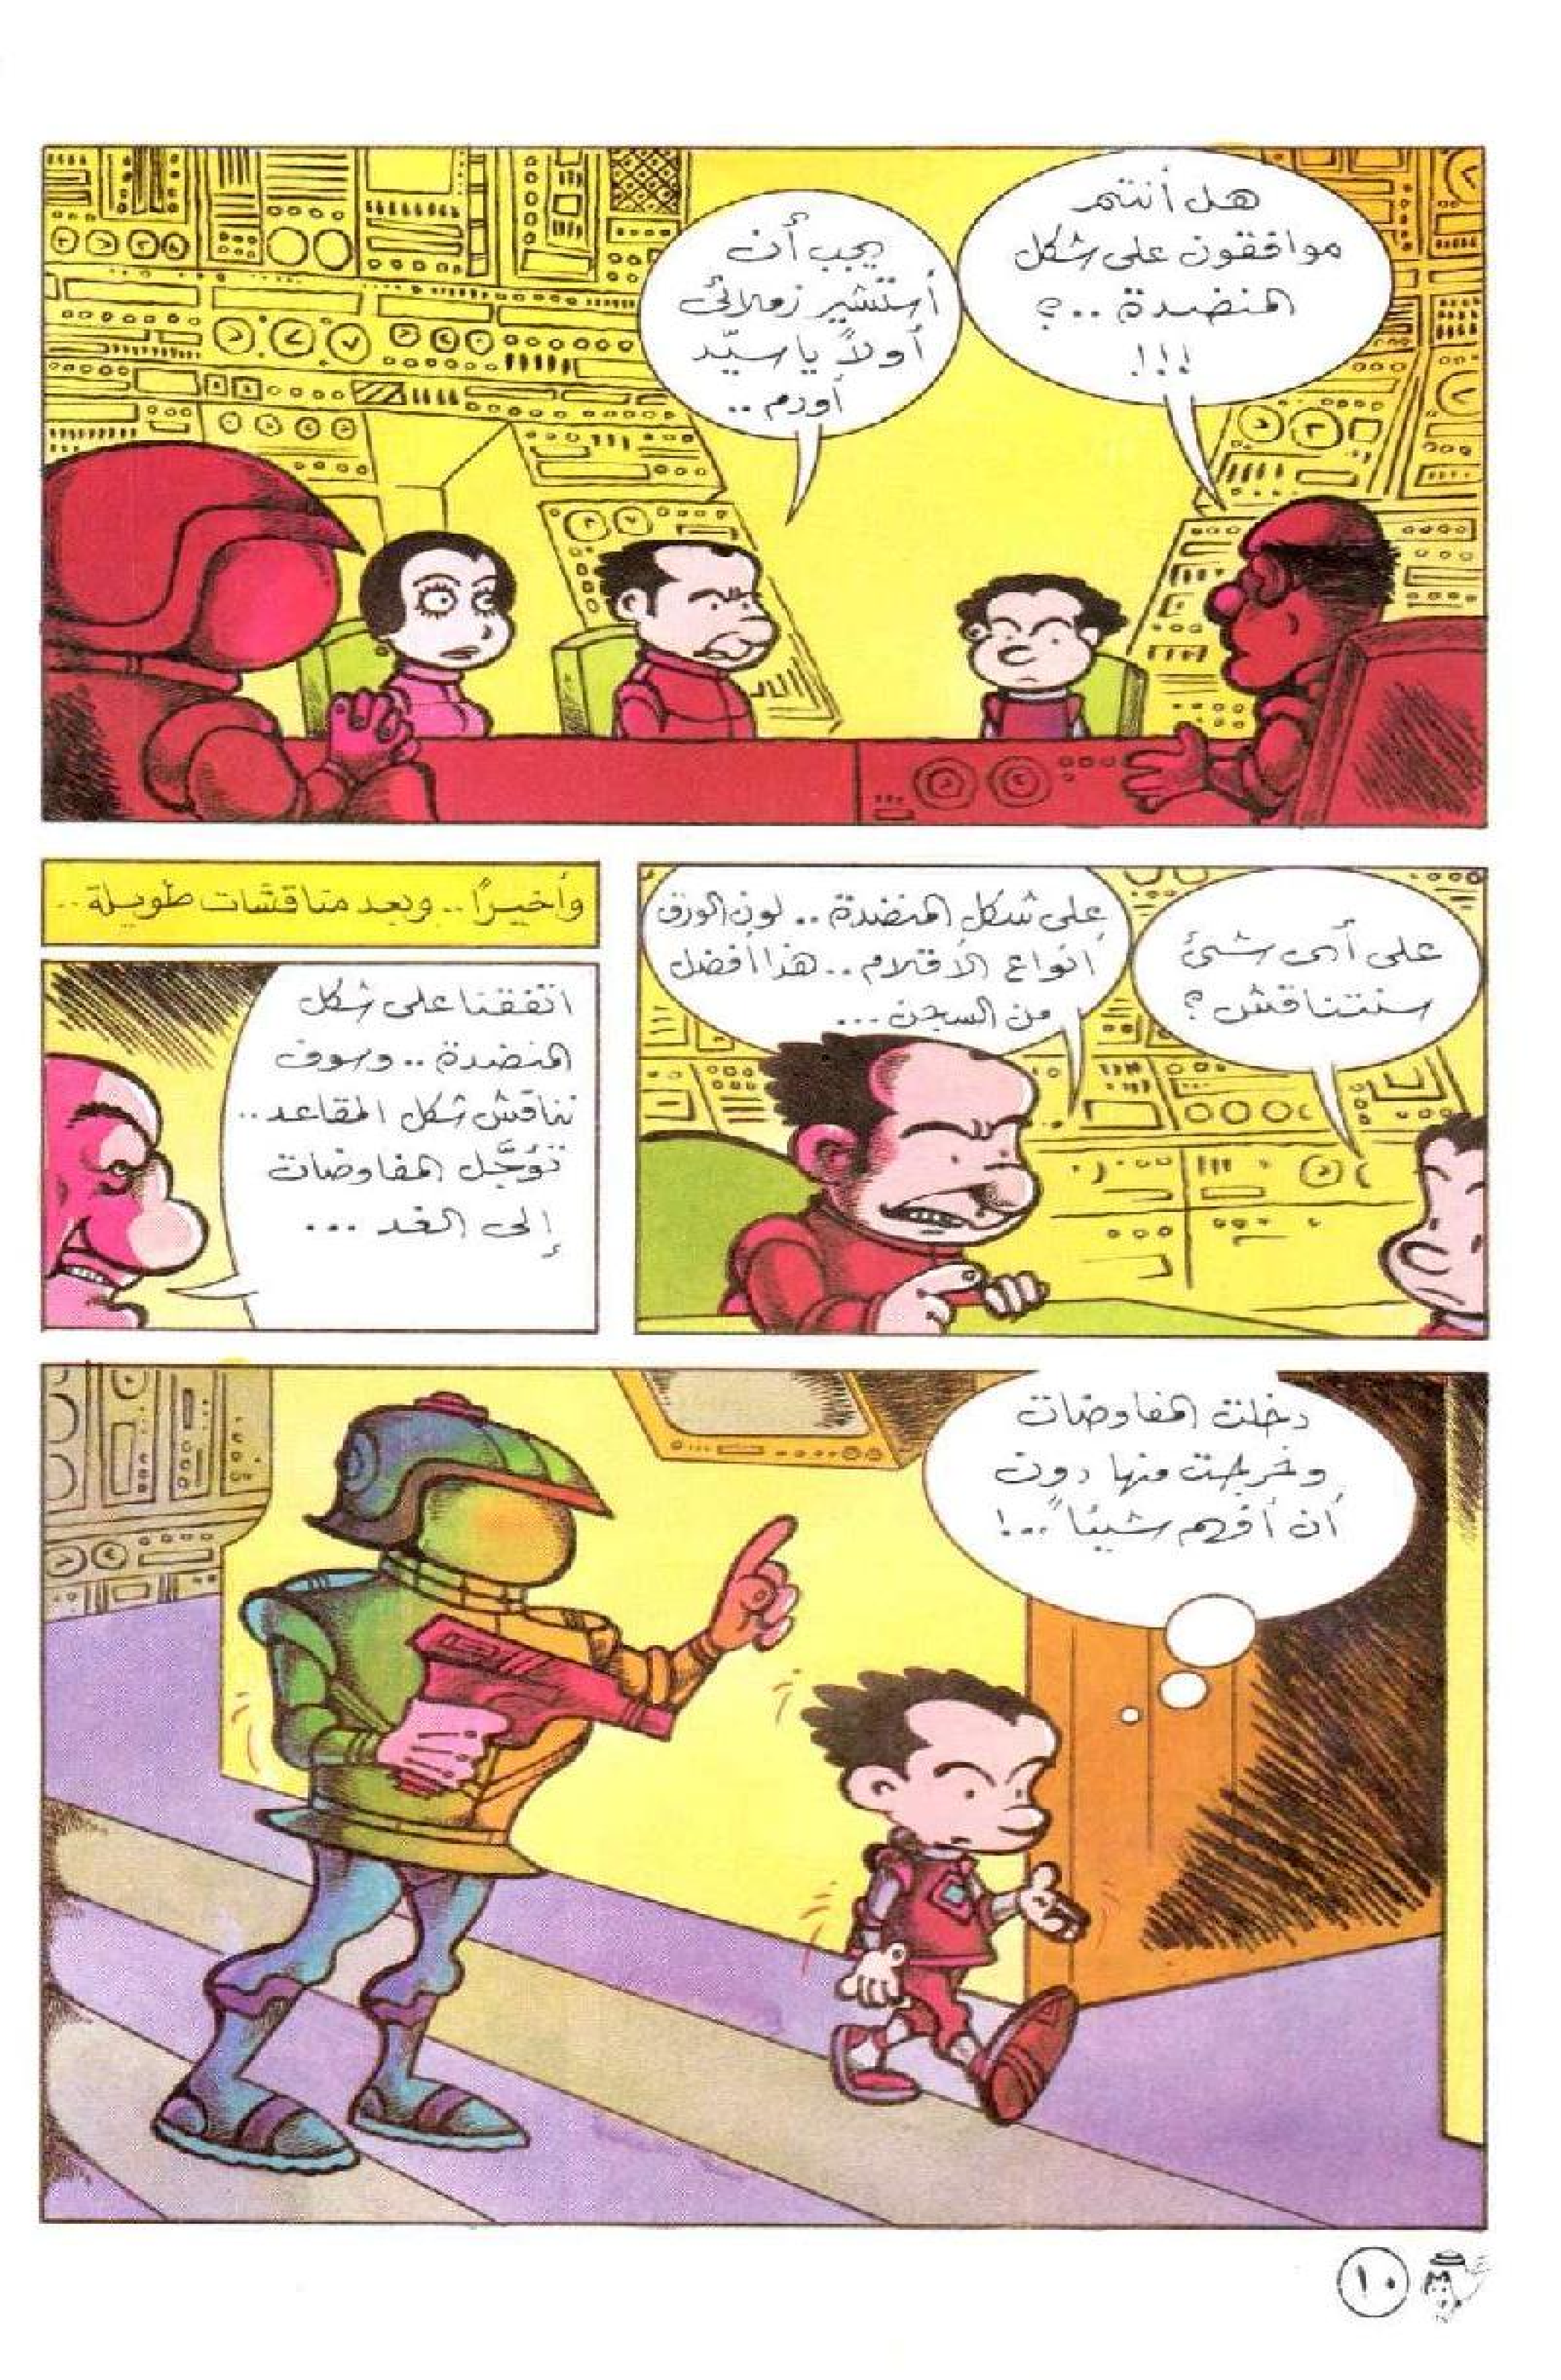 هل أنتم
موافقون على شكل
المنضدة ..؟
!!!
يجب أن
أستشير زملائى
أولاً يا سيّد
أورم ..
على أى شئ
سنتناقش ؟
على شكل المنضدة .. لون الورق
أنواع الأقلام .. هذا أفضل
من السجن ...
وأخيراً .. وبعد مناقشات طويلة ..
اتفقنا على شكل
المنضدة .. وسوف
نناقش شكل المقاعد ..
تؤجَّل المفاوضات
إلى الغد ...
دخلت المفاوضات
وخرجت منها دون
أن أفهم شيئاً ..!
١٠